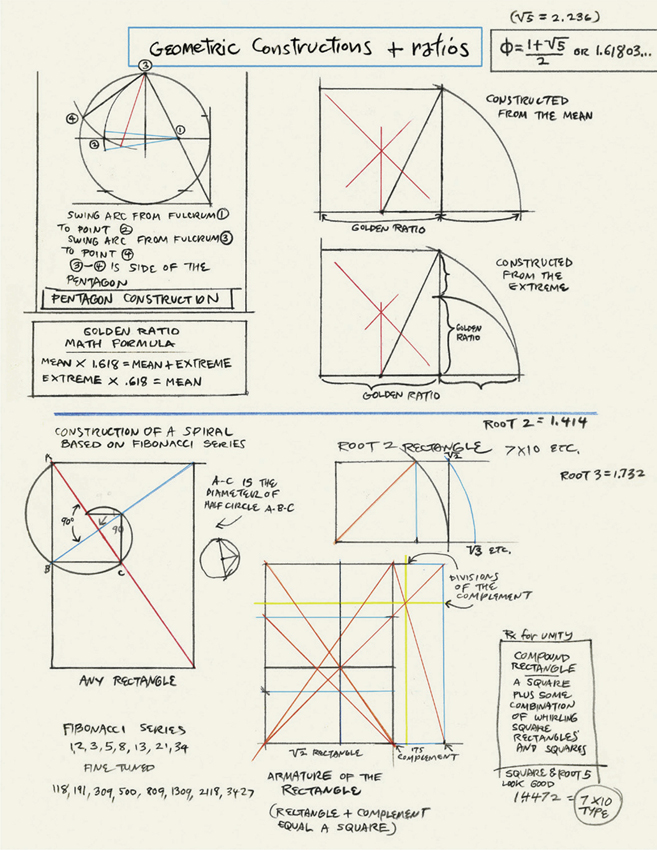 (√5 = 2.236)
GEOMETRIC CONSTRUCTIONS + RATIOS
Φ = 1+√5/2 OR 1.61803...
3
4
2
1
SWING ARC FROM FULCRUM 1
TO POINT 2
SWING ARC FROM FULCRUM 3
TO POINT 4
3-4 IS SIDE OF THE
PENTAGON
PENTAGON CONSTRUCTION
CONSTRUCTED
FROM THE MEAN
GOLDEN RATIO
CONSTRUCTED
FROM THE
EXTREME
GOLDEN
RATIO
GOLDEN RATIO
GOLDEN RATIO
MATH FORMULA
MEAN X 1.618 = MEAN + EXTREME
EXTREME X .618 = MEAN
ROOT 2 = 1.414
CONSTRUCTION OF A SPIRAL
BASED ON FIBONACCI SERIES
ROOT 2 RECTANGLE 7X10 ETC.
√2
ROOT 3 = 1.732
A
A-C IS THE
DIAMETER OF
HALF CIRCLE A-B-C
90°
90
B
C
√3 ETC.
DIVISIONS
OF THE
COMPLEMENT
ANY RECTANGLE
Rx for UNITY
COMPOUND
RECTANGLE
A SQUARE
PLUS SOME
COMBINATION
OF WHIRLING
SQUARE
RECTANGLES
AND SQUARES
SQUARE & ROOT 5
LOOK GOOD
1.4472 = 7X10
TYPE
FIBONACCI SERIES
1,2,3,5,8,13,21,34
FINE TUNED
118, 191, 309, 500, 809, 1309, 2118, 3427
√2 RECTANGLE
ITS
COMPLEMENT
ARMATURE OF THE
RECTANGLE
(RECTANGLE + COMPLEMENT
EQUAL A SQUARE)